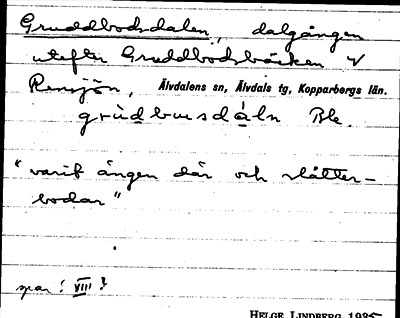 Gruddbodsdalen, dalgången
utefter Gruddbodsbäcken V
Rensjön, Älvdalens sn, Älvdals tg, Kopparbergs län.
grùdbusdàln Ble.
"varit ängen där och slåtter-
bodar"
spar! VIII?
HELGE LINDBERG 1935